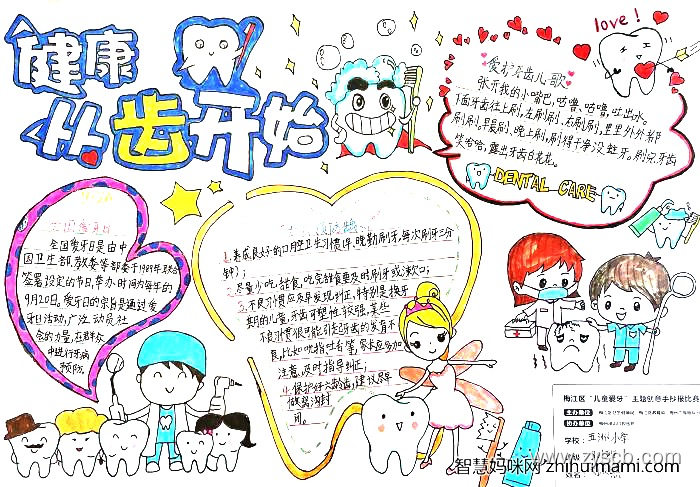 健康
从齿开始
love!
爱护牙齿儿歌
张开我的小嘴巴,咕噜、咕噜,吐出水。
下面牙齿往上刷,左刷刷,右刷刷,里里外外都
刷刷,早晨刷,晚上刷,刷得干净没蛀牙。刷完牙齿
笑哈哈,露出牙齿白花花。
DENTAL CARE
全国爱牙日
全国爱牙日是由中
国卫生部、教委等部委于1989年联合
签署设定的节日,举办时间为每年的
9月20日。爱牙日的宗旨是通过爱
牙日活动,广泛动员社
会的力量,在群众
中进行牙病
预防
1.养成良好的口腔卫生习惯,早、晚勤刷牙,每次刷牙三分
钟;
2.尽量少吃甜食,吃完甜食要及时刷牙或漱口;
3.不良习惯应及早发现、纠正,特别是换牙
期的儿童,牙齿可塑性较强,某些
不良习惯很可能引起牙齿的发育不
良,比如吮指、吐舌等,家长应多加
注意,及时指导纠正;
4.保护好六龄齿,建议尽早
做窝沟封
闭。
梅江区“儿童爱牙”主题创意手抄报比赛
主办单位
协办单位
学校:五洲小学
智慧妈咪网 zhihuimami.com